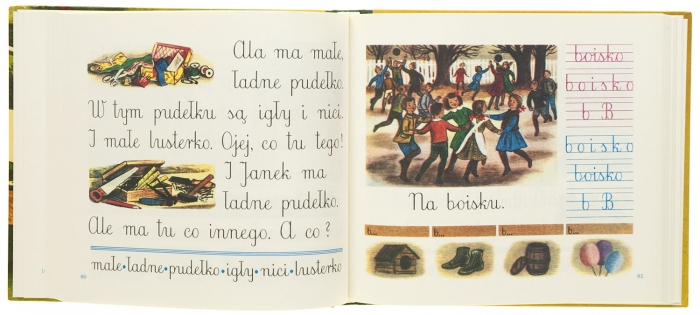 Ala ma małe,
ładne pudełko.
W tym pudełku są igły i nici.
I małe lusterko. Ojej, co tu tego!
I Janek ma
ładne pudełko.
Ale ma tu co innego. A co?
małe•ładne•pudełko•igły•nici•lusterko
boisko
boisko
b B
boisko
boisko
b B
Na boisku.
b... b... b... b...